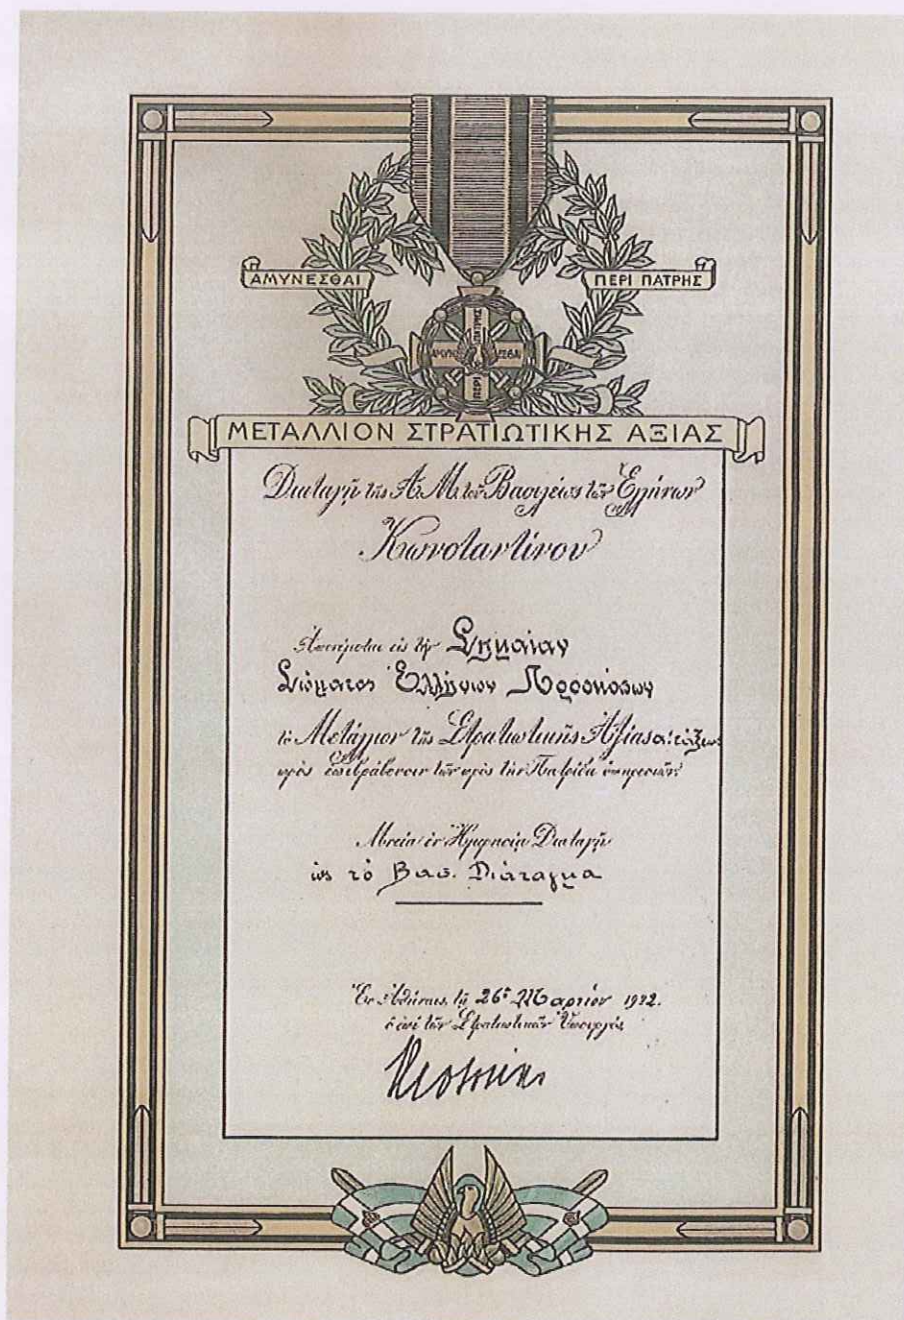 ΑΜΥΝΕΣΘΑΙ
ΠΕΡΙ ΠΑΤΡΗΣ
ΠΕΡΙ ΠΑΤΡΗΣ
ΜΕΤΑΛΛΙΟΝ ΣΤΡΑΤΙΩΤΙΚΗΣ ΑΞΙΑΣ
Διαταγῇ τῆς Α.Μ. τοῦ Βασιλέως τῶν Ἑλλήνων
Κωνσταντίνου
Ἀπονέμεται εἰς τὴν Σημαίαν
Σώματος Ἑλλήνων Προσκόπων
τὸ Μετάλλιον τῆς Στρατιωτικῆς Ἀξίας
πρὸς ἐπιβράβευσιν τῶν πρὸς τὴν Πατρίδα ὑπηρεσιῶν
Μνεία ἐν Ἡμερησίᾳ Διαταγῇ
ὡς τὸ Βασ. Διάταγμα
Ἐν Ἀθήναις τῇ 26ῃ Μαρτίου 1922.
ὁ ἐπὶ τῶν Στρατιωτικῶν Ὑπουργὸς